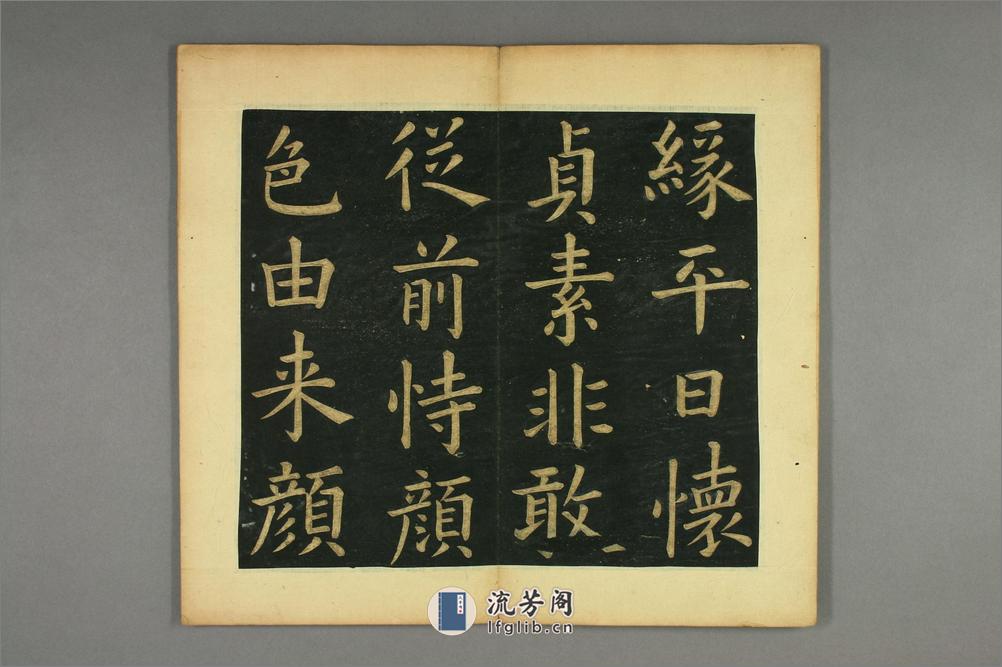 緣平日懷
貞素非敢
從前恃顏
色由来顏
流芳阁
lfglib.cn